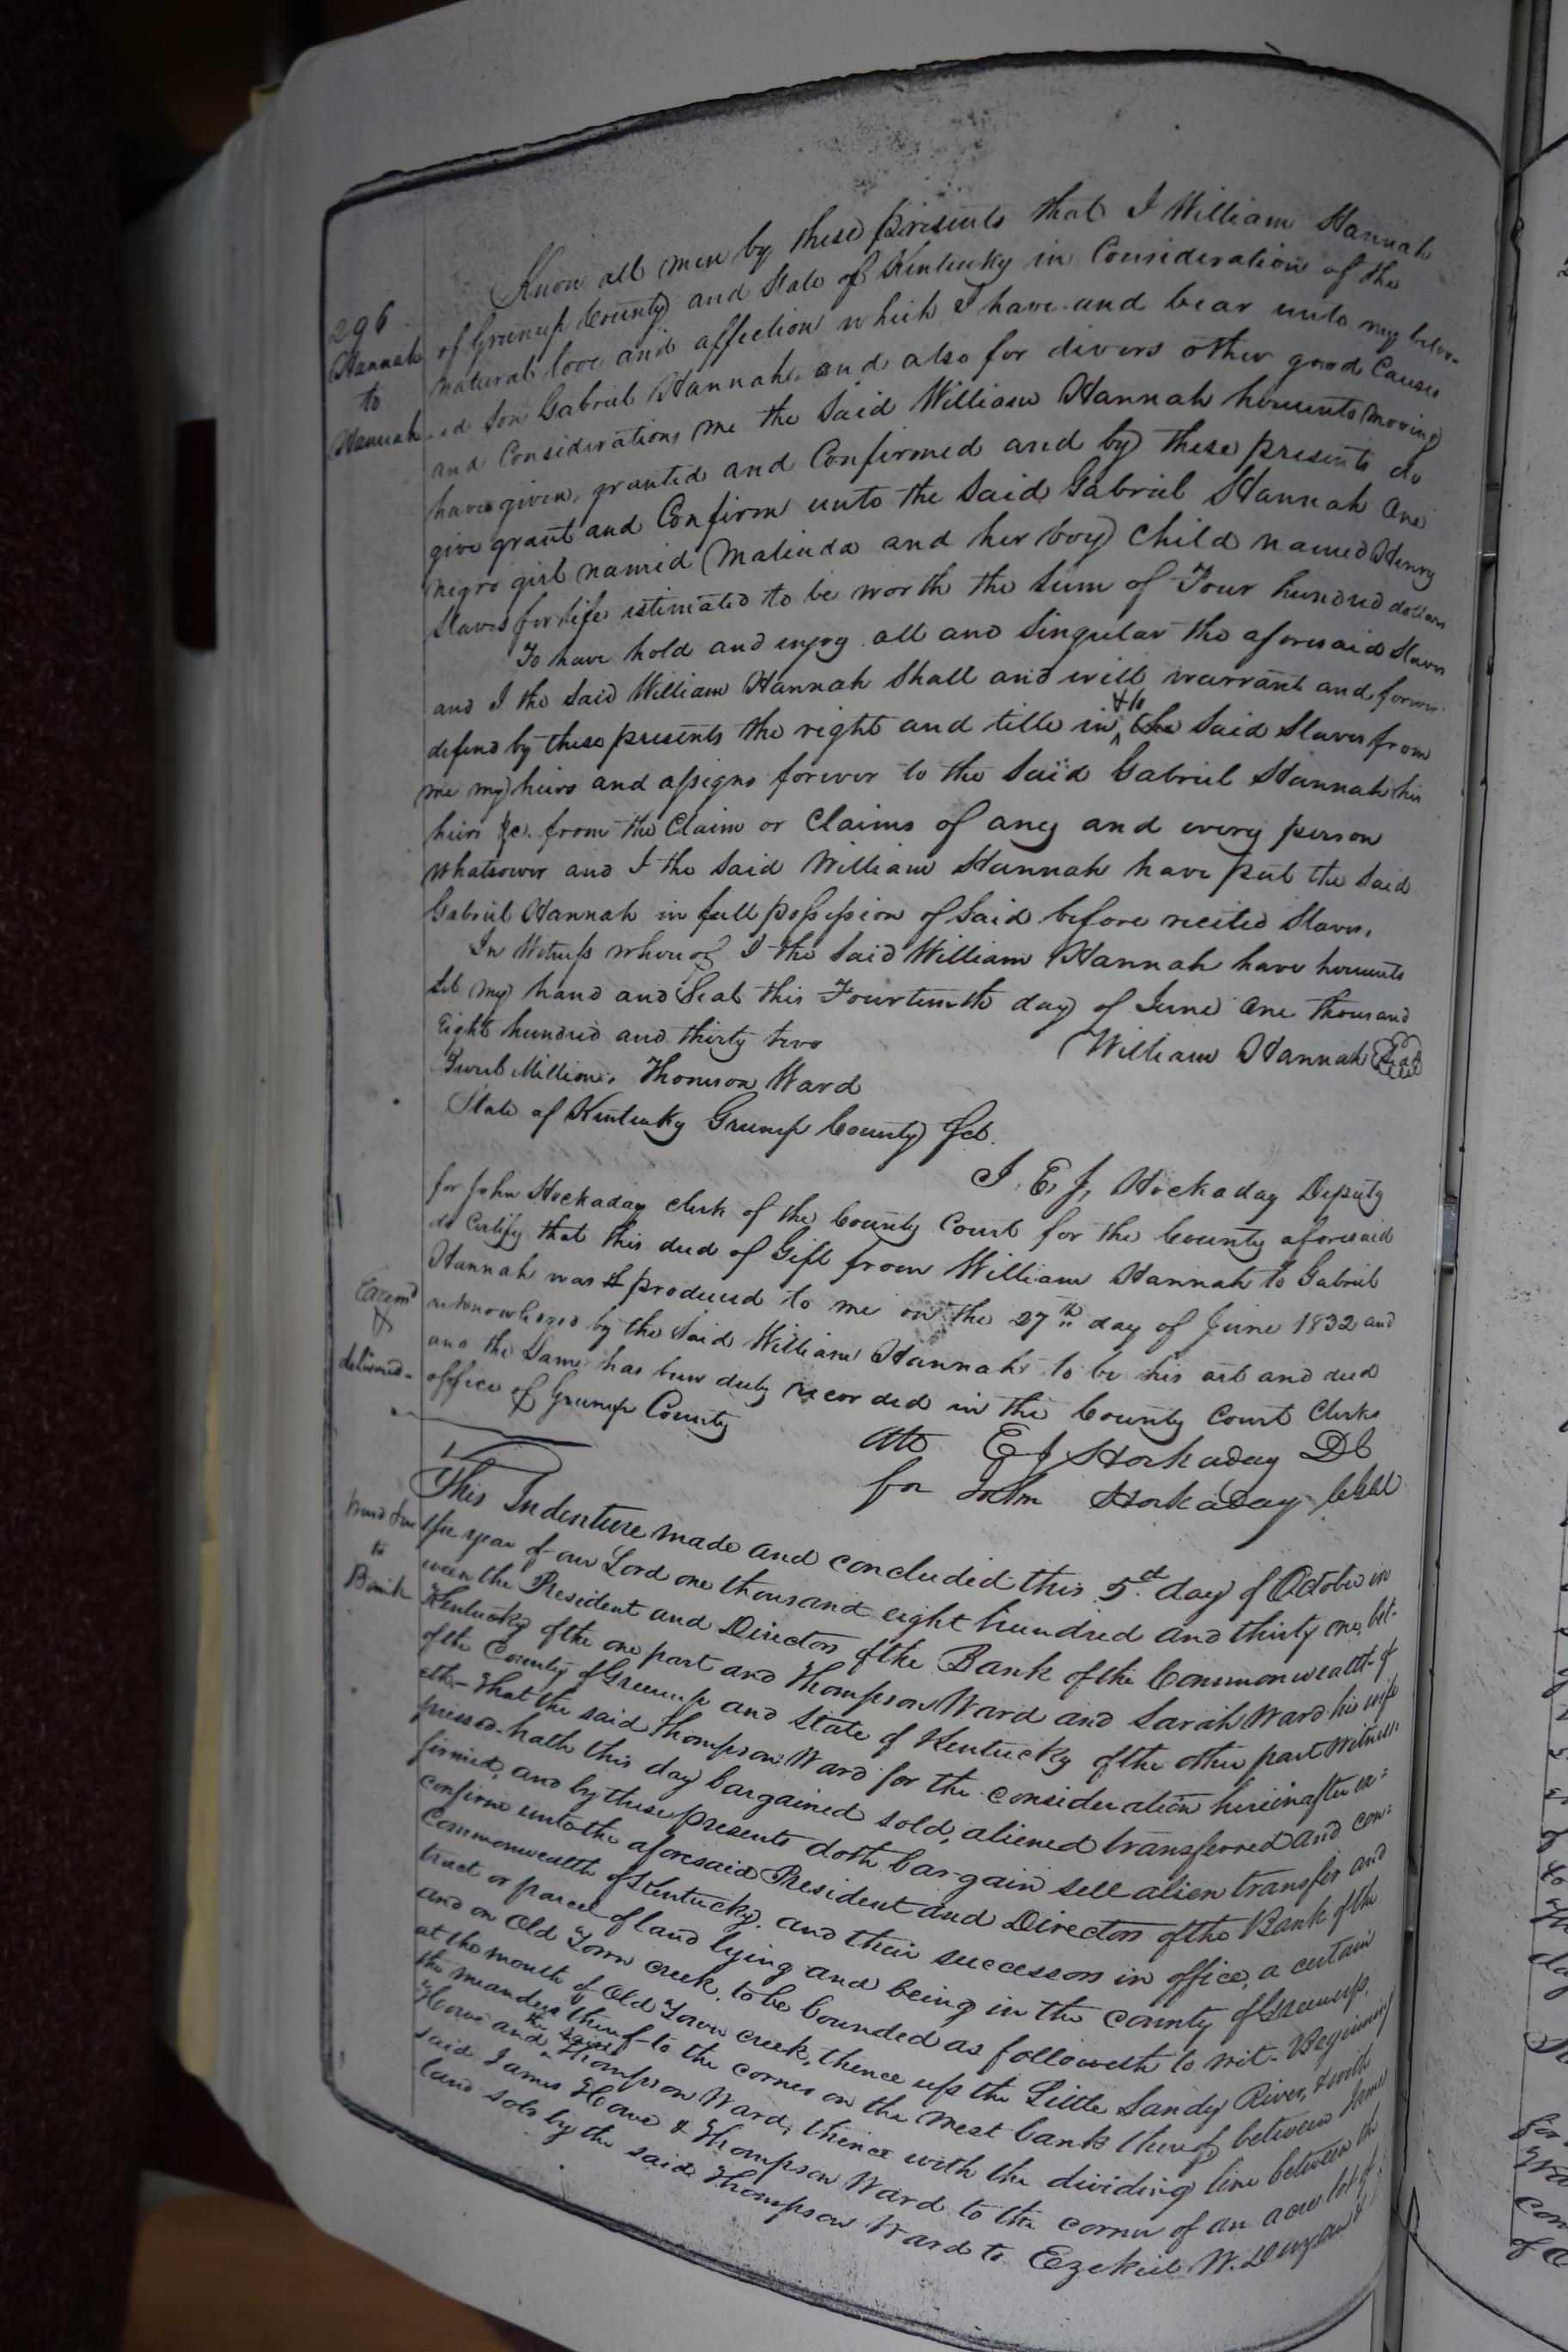 296
Hannah
to
Hannah
Know all men by these presents that I William Hannah
of Greenup County and State of Kentucky in Consideration of the
natural love and affection which I have and bear unto my belov-
ed Son Gabriel Hannah and also for divers other good Causes
and Considerations me the Said William Hannah hereunto moving
have given, granted and Confirmed and by these presents do
give grant and Confirm unto the Said Gabriel Hannah One
negro girl named Malinda and her boy Child named Henry
Slaves for life estimated to be worth the Sum of Four hundred dollars
To have hold and enjoy all and Singular the aforesaid Slaves
and I the Said William Hannah Shall and will warrant and forever
defend by these presents the right and title in & to the Said Slaves from
me my heirs and assigns forever to the Said Gabriel Hannah his
heirs &c. from the Claim or Claims of any and every person
Whatsoever and I the Said William Hannah have put the Said
Gabriel Hannah in full possession of Said before recited Slaves.
In Witness whereof I the Said William Hannah have hereunto
Set my hand and Seal this Fourteenth day of June One thousand
Eight hundred and thirty two
William Hannah Seal
Million, Thomson Ward
State of Kentucky Greenup County Sct.
I. E. J. Hockaday Deputy
for John Hockaday Clerk of the County Court for the County aforesaid
do Certify that this deed of Gift from William Hannah to Gabriel
Hannah was produced to me on the 27th day of June 1832 and
acknowledged by the Said William Hannah to be his act and deed
and the Same has been duly recorded in the County Court Clerks
office of Greenup County
Examd
&
delivered
Att E J Hockaday DC
for John Hockaday
to
Bank
This Indenture made and concluded this 5th day of October in
the year of our Lord one thousand eight hundred and thirty one, bet-
ween the President and Directors of the Bank of the Commonwealth of
Kentucky of the one part and Thompson Ward and Sarah Ward his wife
of the County of Greenup and State of Kentucky of the other part Witness-
eth- That the said Thompson Ward for the consideration hereinafter ex=
pressed- hath this day bargained sold, aliened transferred and con=
firmed, and by these presents doth bargain sell alien transfer and
confirm unto the aforesaid President and Directors of the Bank of the
Commonwealth of Kentucky. and their successors in office, a certain
tract or parcel of land lying and being in the County of Greenup,
and on Old Town creek, to be bounded as followeth to wit- Beginning
at the mouth of Old Town creek, thence up the Little Sandy River, & with
the meanders thereof to the corner on the west bank thereof between James
Howe and the said Thompson Ward, thence with the dividing line between the
said James Howe & Thompson Ward to the corner of an acre lot of
land sold by the said Thompson Ward to Ezekiel W.